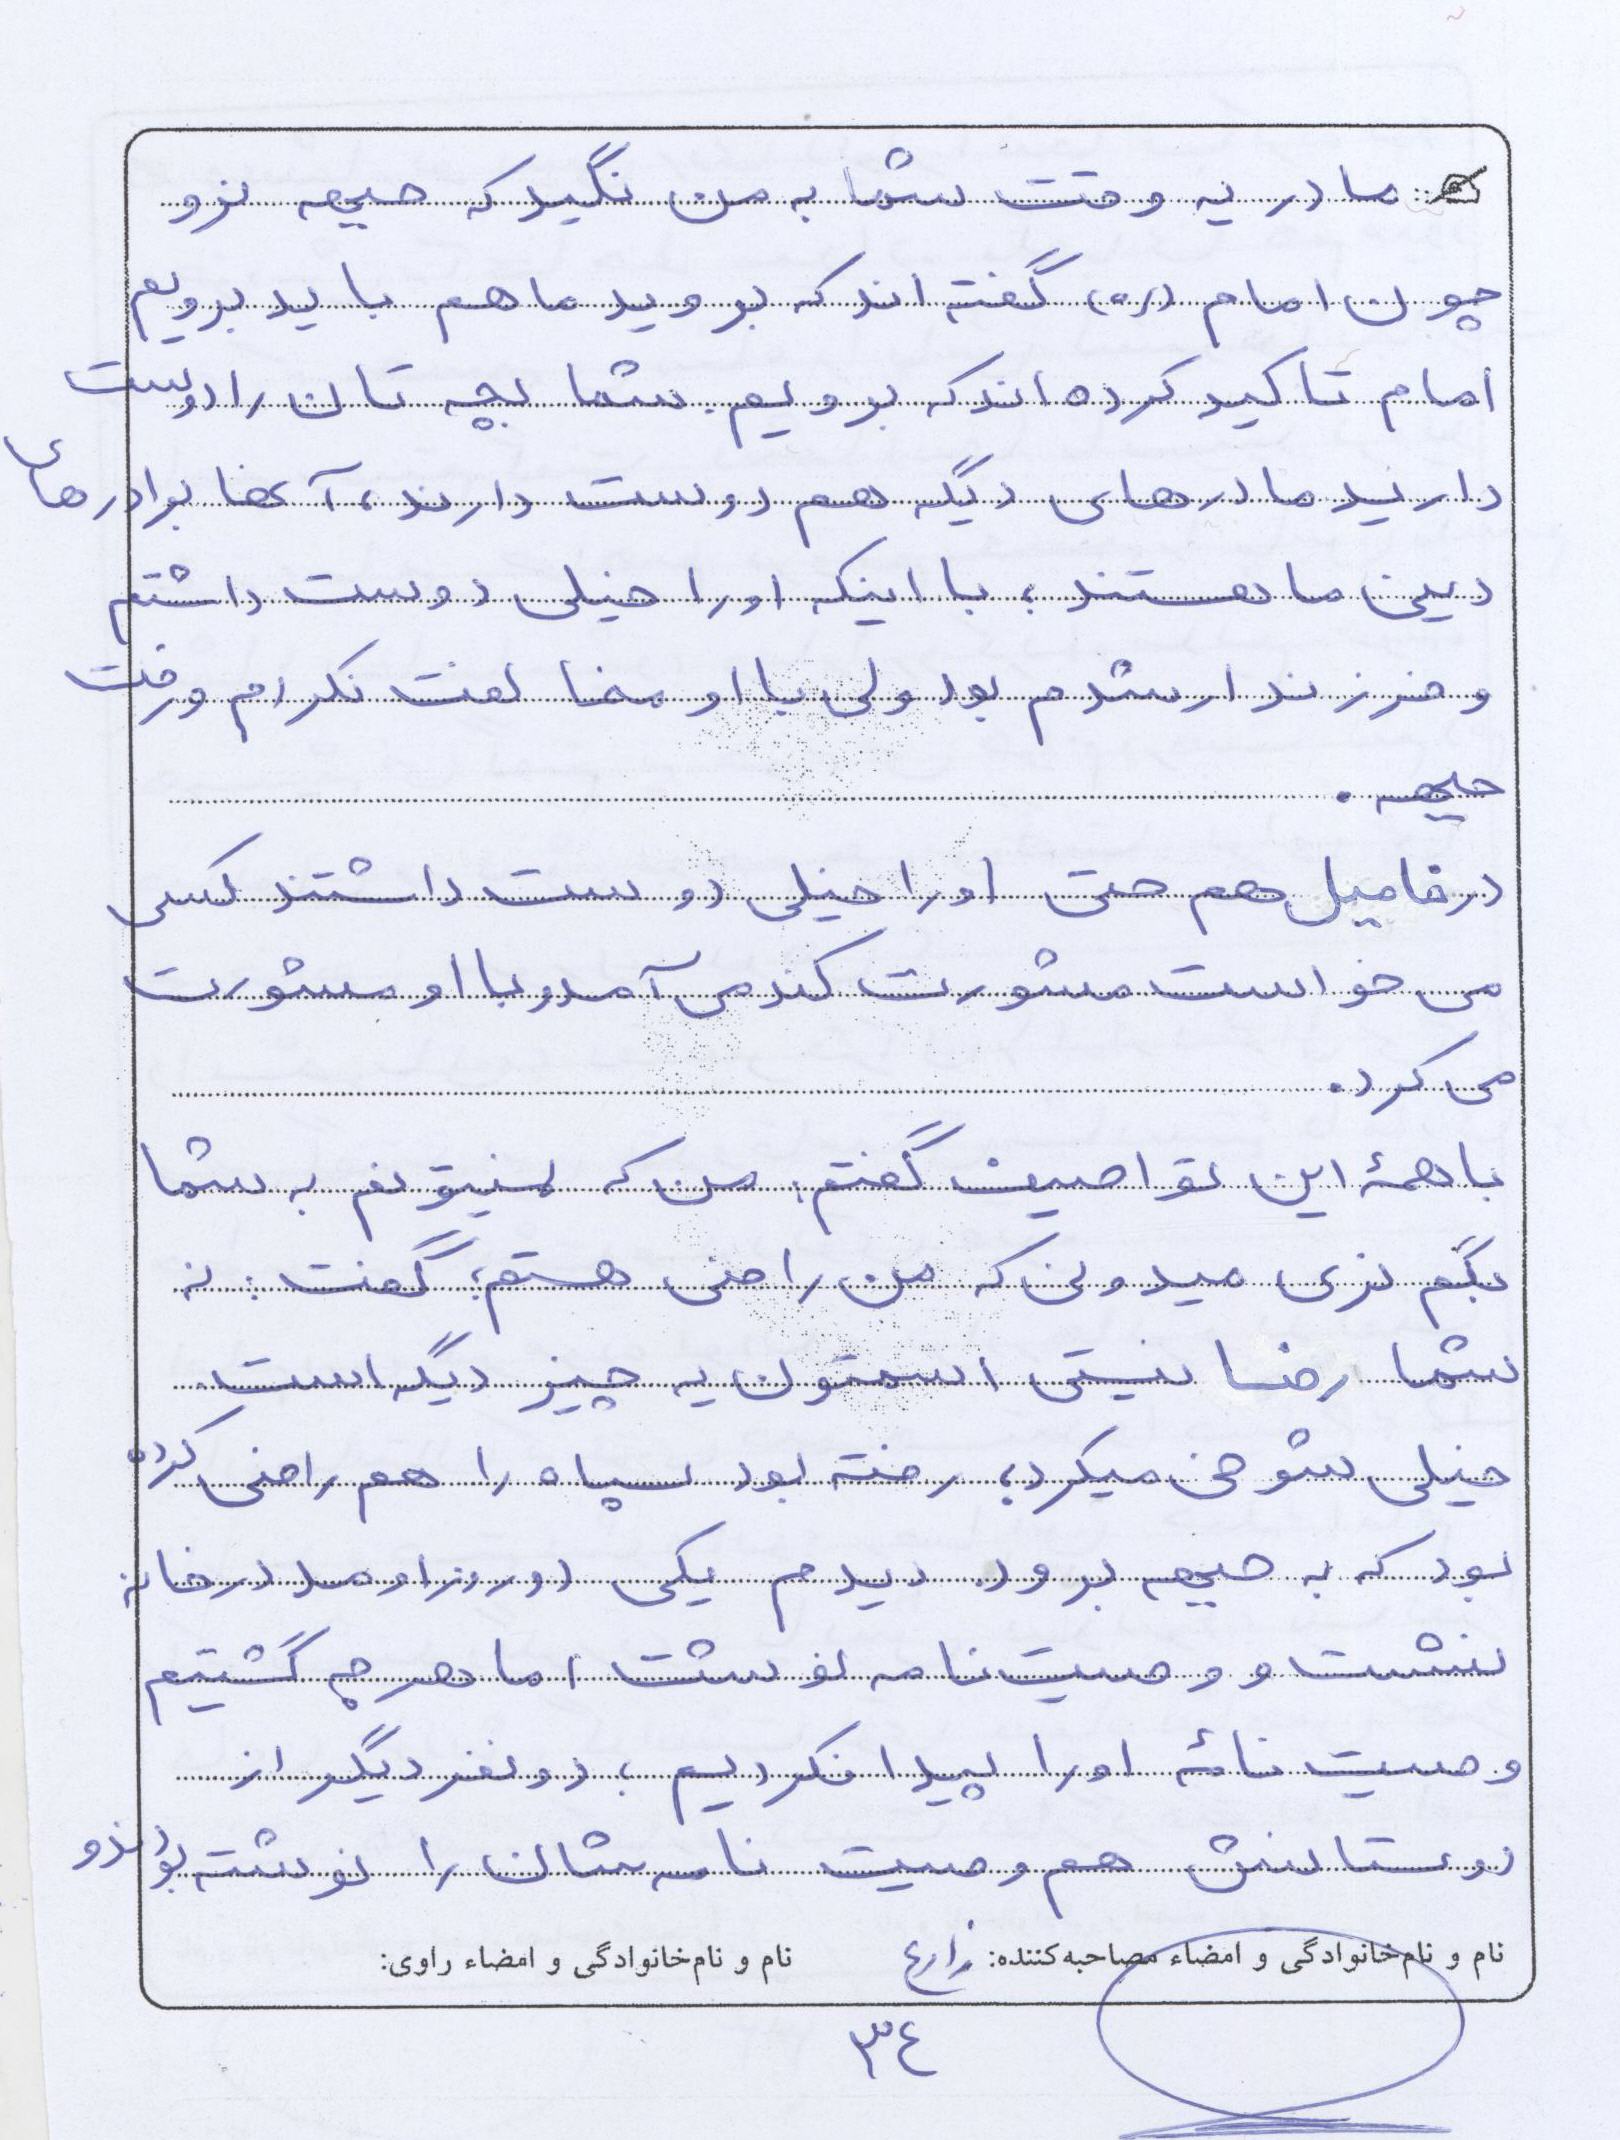 مادر یه وقت شما به من نگید که جبهه نرو
چون امام (ره) گفته اند که بروید ما هم باید برویم
امام تاکید کرده اند که برویم. شما بچه تان را دوست
دارید مادرهای دیگه هم دوست دارند، آنها برادرهای
دینی ما هستند؛ با اینکه او را خیلی دوست داشتم
و فرزند ارشدم بود ولی با او مخالفت نکردم و رفت
جبهه.
در فامیل هم حتی او را خیلی دوست داشتند کسی
می خواست مشورت کند می آمد و با او مشورت
می کرد.
با همهٔ این تواصیف گفتم: من که نمیتونم به شما
بگم نری میدونی که من راضی هستم؛ گفت: نه
شما رضا نیستی اسمتون یه چیز دیگه است.
خیلی شوخی میکرد؛ رفته بود سپاه را هم راضی کرده
بود که به جبهه برود. دیدم یکی دو روز اومد در خانه
نشست و وصیت نامه نوشت اما هر چه گشتیم
وصیت نامهٔ او را پیدا نکردیم؛ دو نفر دیگر از
دوستانش هم وصیت نامه شان را نوشته بودند و
نام و نام‌خانوادگی و امضاء مصاحبه‌کننده: زارع
نام و نام‌خانوادگی و امضاء راوی:
٣٤